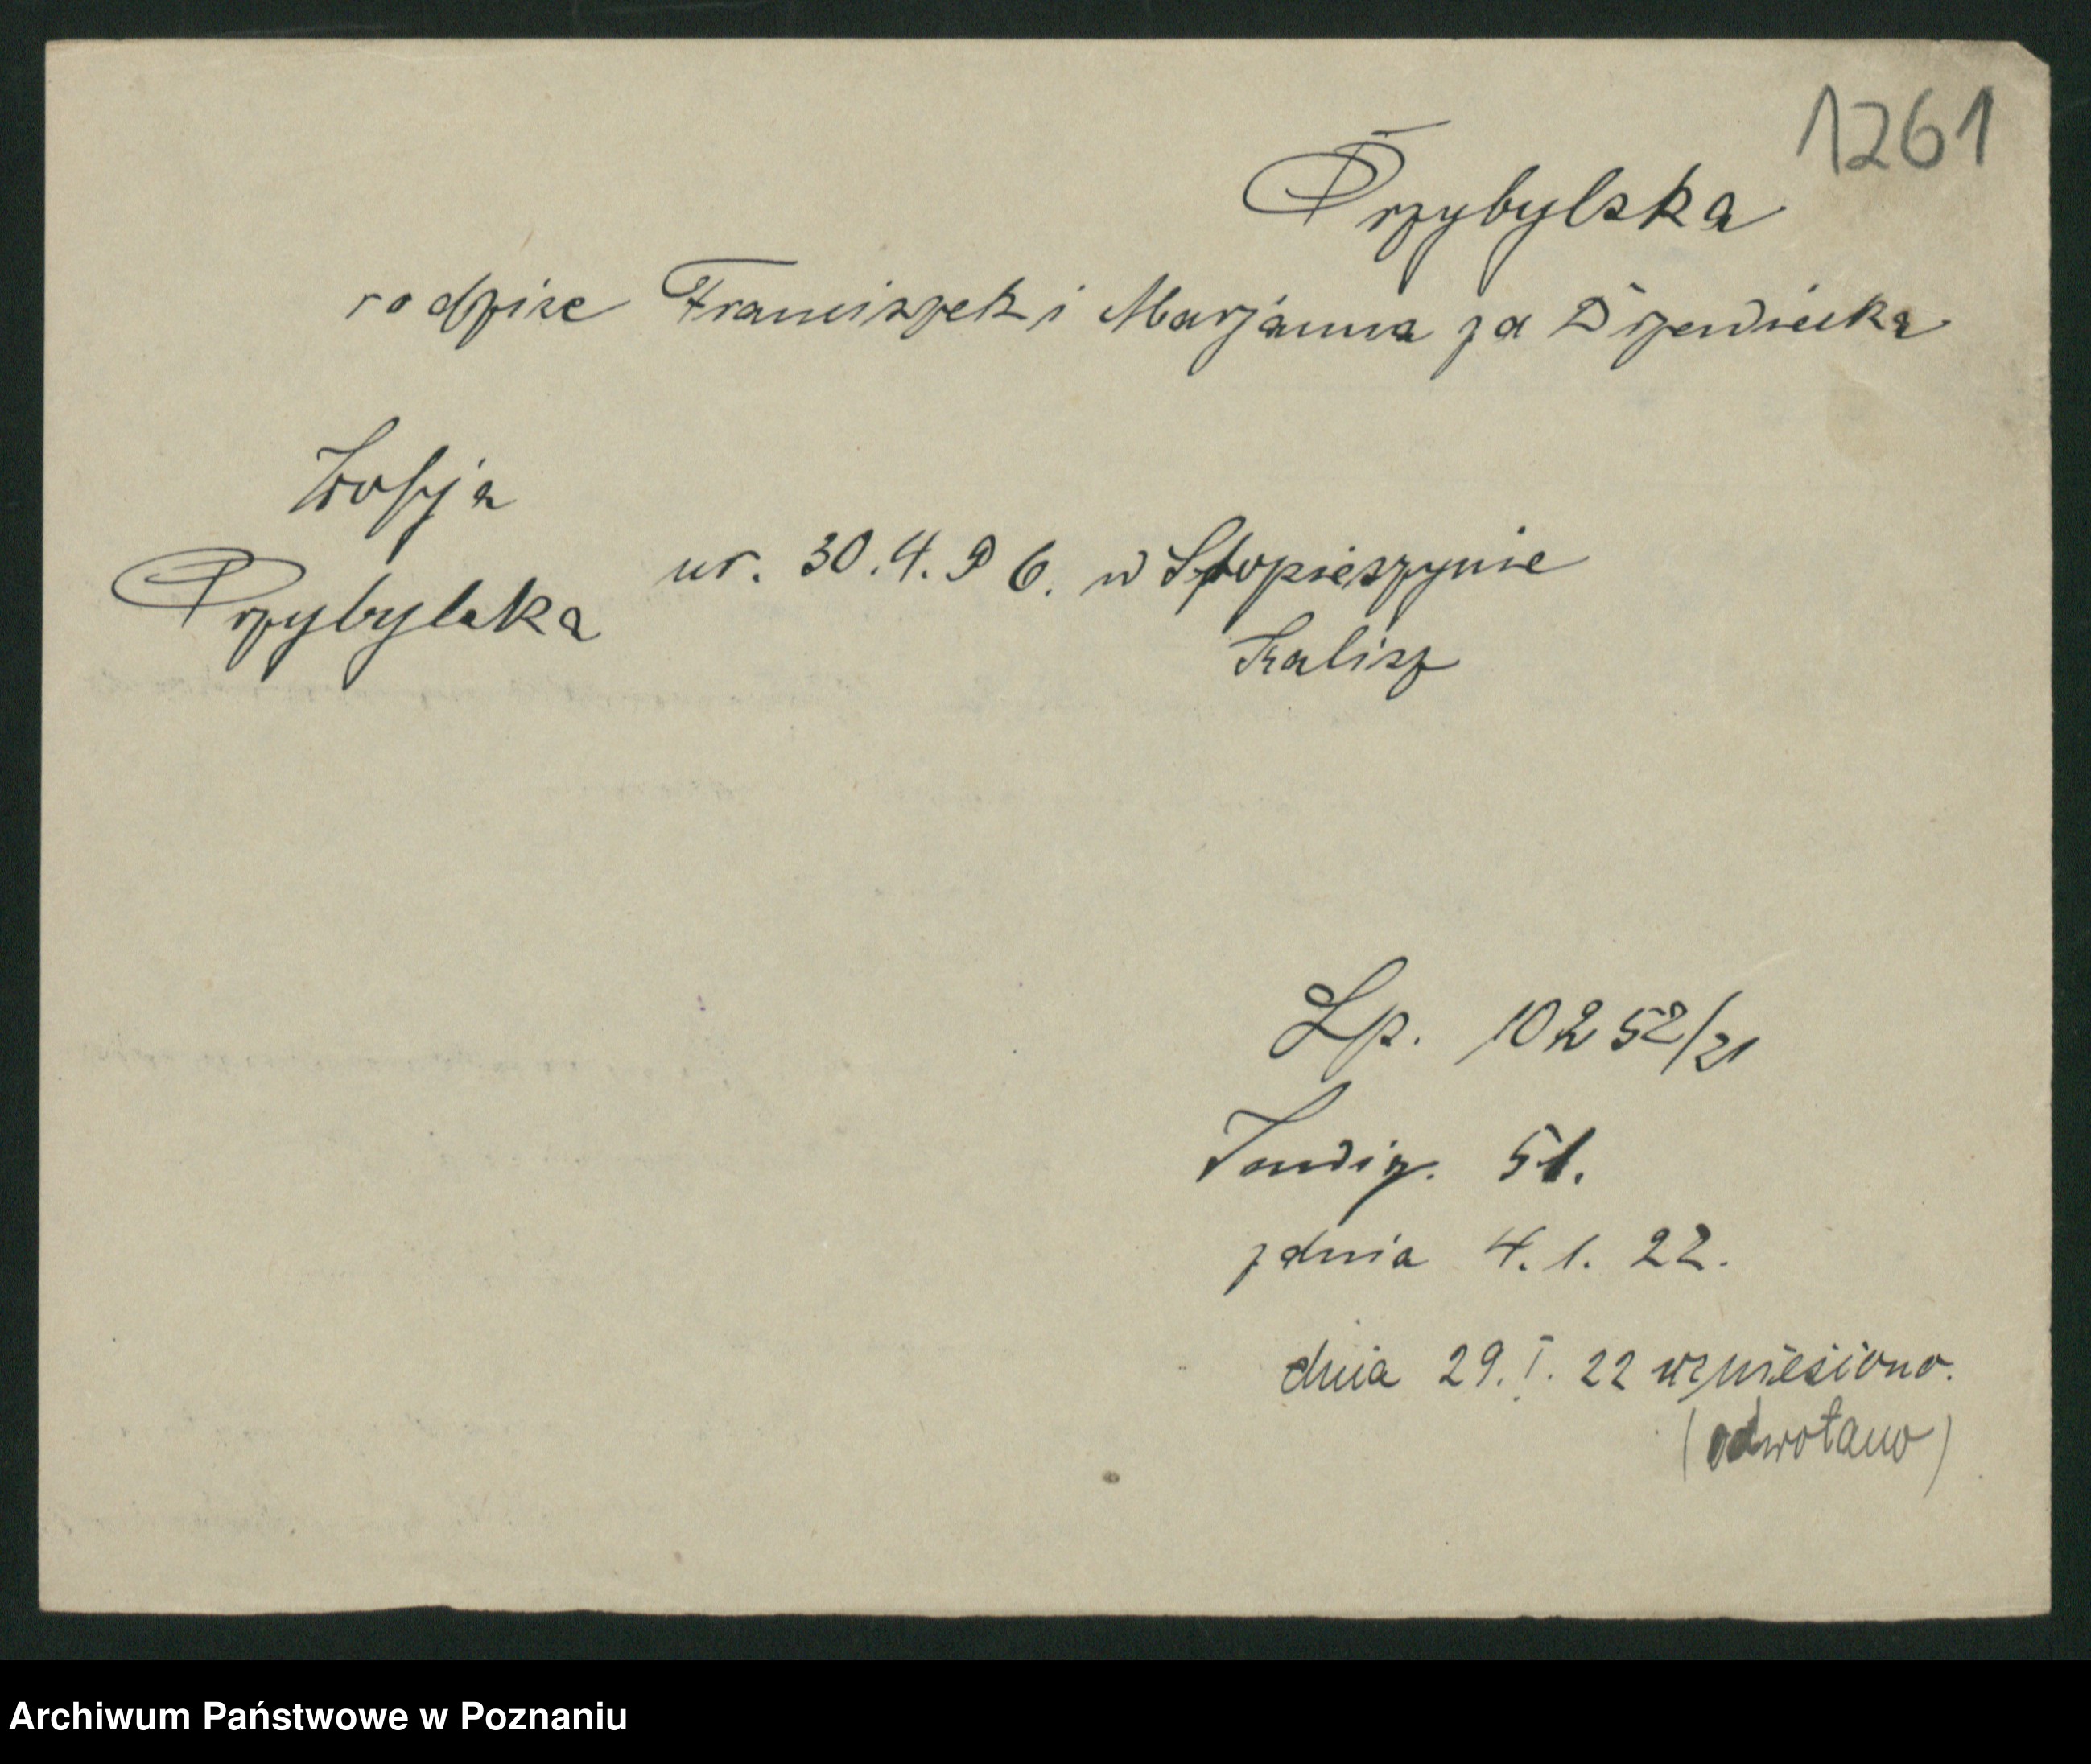 1261
Przybylska
rodzice Franciszek i Marjanna za Drzewiecka
Zofja
Przybylska ur. 30.4.96. w Stopieszynie
Kalisz
Lp. 10252/21
51.
z dnia 4.1.22.
dnia 29.I.22 wzniesiono.
(odwołano)
Archiwum Państwowe w Poznaniu